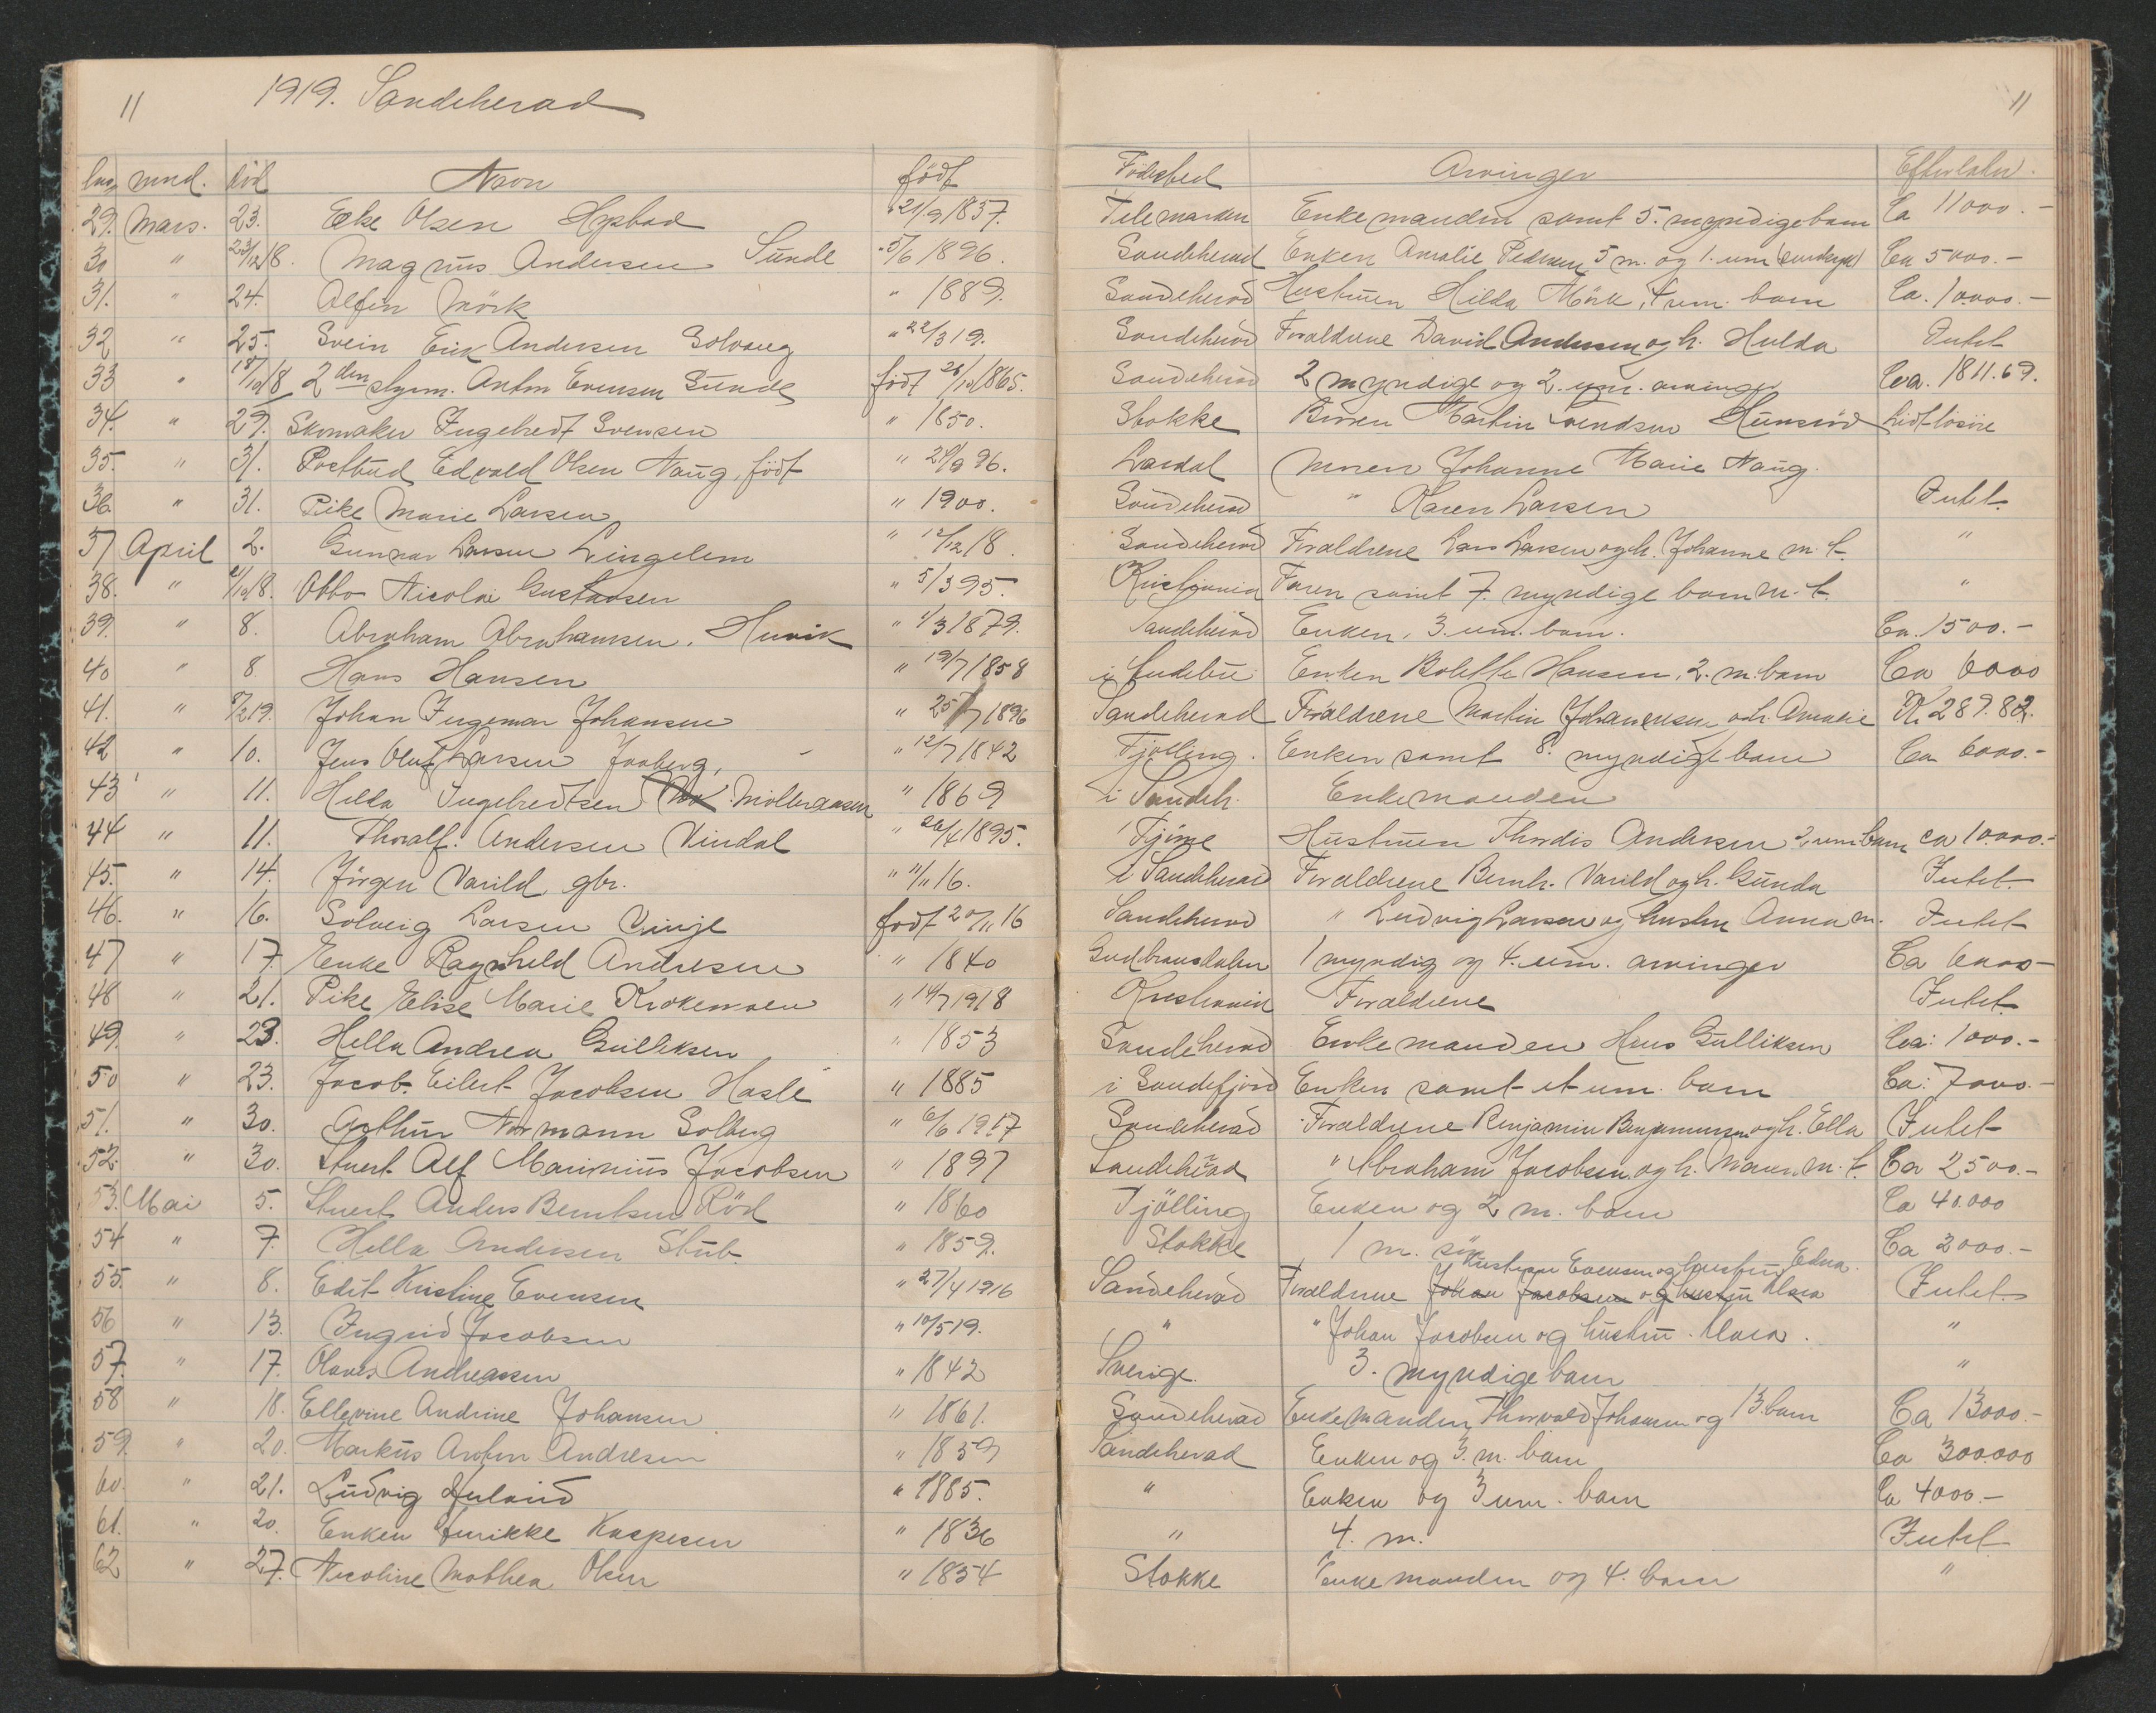 11 1919. Sandeherad 11
mnd. död Navn född Födested Arvinger Efterladn.
29. Mars. 23. Olsen " 21/9 1837. Telemarken Enkemanden samt 5. myndige barn Ca 11000.-
30 " 23/12 18. Magnus Andersen Sunde " 5/6 1896. Sandeherad Enken Amalie Pedersen, 5 m. og 1. um Ca 5000.-
31. " 24. Alfin Mörk " 1889. Sandeherad Hustruen Hilda Mörk, 4 um. barn Ca. 10000.-
32 " 25. Svein Erik Andersen Solvang " 22/3 19. Sandeherad Foraldrene David Andersen og h. Hulda Intet
33 " 18/10 18 2den styrm. Anton Evensen Sunde född 26/10 1865. Sandeherad 2 myndige og 2. um. arvinger Ca. 1811.69.
34. " 29. Skomaker Ingebredt Svensen " 1850. Stokke Broren Martin Lidt lösöre
35. " 31. Postbud Edvald Olsen Naug, född " 29/9 96. Lardal Moren Johanne Marie Naug.
36. " 31. Pike Marie Larsen " 1900. Sandeherad " Karen Larsen Intet.
37 April 2. Gunnar Larsen Lingelem " 12/12 18. Sandeherad Foraldrene Lars Larsen og h. Johanne m. f. "
38. " 2/10 18. Otto Nicolai Gustavsen " 5/3 95. Kristiania Faren samt 7. myndige barn m. f. "
39. " 8. Abraham Abrahamsen. Huvik " 1/3 1879. Sandeherad Enken, 3. um. barn. Ca. 1500.-
40 " 8. Hans Hansen " 19/7 1858 i Andebu Enken Bolette Hansen, 2. m. barn Ca 6000
41. " 8/2 19. Johan Ingemar Johansen " 25/7 1896 Sandeherad Foraldrene Martin Johannesen og h. Amalie Kr. 289.82.
42 " 10. Jens Oluf Larsen Joaberg, " 12/7 1842 Tjölling. Enken samt 8. myndige barn Ca 6000.-
43 " 11. Hilda Ingebredtsen " 1869 i Sandeh. Enkemanden
44 " 11. Thoralf. Andersen Vindal " 1895. Tjöme Hustruen Thordis Andersen 2 um barn ca 10000.-
45. " 14. Jörgen Varild gbr. " 11/11 16. i Sandeherad Foraldrene Bernh. Varild og h. Gunda Intet.
46. " 16. Solveig Larsen Vinje född 20/11 16 Sandeherad " Ludvig Larsen og hustru Anna m. Intet
47 " 17. Enke Ragnhild Andresen " 1840 Gudbrandsdalen 1 myndig og 4. um. arvinger Ca 6000-
48 " 21. Pike Elise Marie Krokemoen " 14/7 1918 Kristiania Foraldrene Intet.
49. " 23. Hella Andrea Gulliksen " 1853 Sandeherad Enkemanden Hans Gulliksen Ca: 1000.-
50 " 23. Jacob. Eilert Jacobsen Hasle " 1885 i Sandefjord Enken samt et um. barn Ca: 7000.-
51. " 30. Arthur Normann Solberg " 6/6 1917 Sandeherad Foraldrene Benjamin Benjaminsen og h. Ella Intet
52. " 30. Stuert Alf Marinius Jacobsen " 1897 Sandeherad " Abraham Jacobsen og h. Maren m. f. Ca 2500.-
53. Mai 5. Stuert Anders Berntsen Röd " 1860 Tjölling Enken og 2 m. barn Ca 40.000
54 " 7. Hella Andersen Stub. " 1859. Stokke 1 m. sön Ca 2000.-
Kristian Evensen og hustru Edna.
55. " 8. Edit Kristine Evensen " 27/4 1916 Sandeherad Foraldrene Johan Jacobsen og hustru Klara Intet.
56 " 13. Ingrid Jacobsen " 10/5 19. " " Johan Jacobsen og hustru. Klara. "
57. " 17. Olaves Andreassen " 1842 Sverige. 3. myndige barn "
58 " 18. Ellevine Andrine Johansen " 1861. Sandeherad Enkemanden Thorvald Johansen og 13. barn Ca 13000.-
59. " 20. Markus Anton Andresen " 1859 Sandeherad Enken og 3. m. barn Ca 300000
60. " 21. Ludvig " 1885. " Enken og 3 um. barn Ca 4000.-
61. " 20. Enken Kaspesen " 1836 " 4. m. Intet
62 " 27. Nicoline Mathea Olsen " 1854 Stokke Enkemanden og 4. barn "